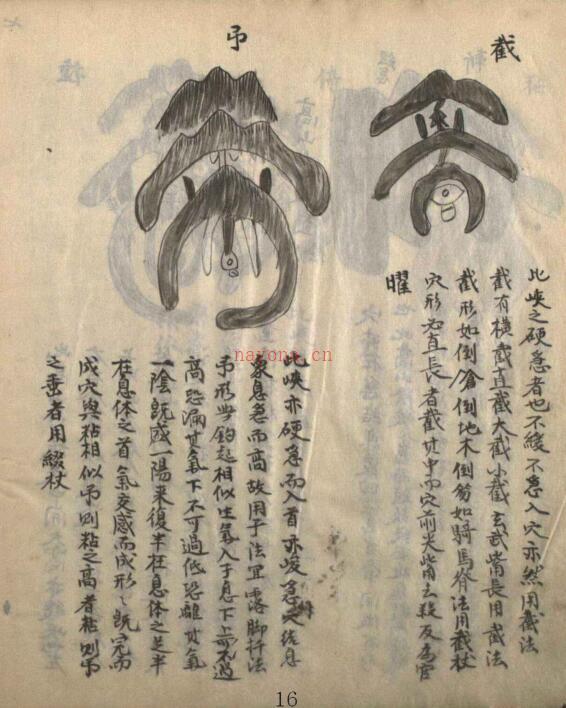 截
此峽之硬急者也不緩不急入穴亦然用截法
截有橫截直截大截小截玄武嘴長用截法
截形如倒倉倒地木倒笏如騎馬脊法用截杖
穴形必直長者截其中而穴前尖嘴去殺反為官
曜
吊
此峽亦硬急而入首亦峻急結息
象息急而高故用于法宜露脚打法
吊形與鈎起相似生氣入于息下上不过
高恐漏其氣下不可過低恐離其氣
一陰既感一陽来復半在息体之足半
在息体之首氣交感而成形形既完而
成穴與粘相似吊則粘之高者粘則吊
之垂者用綴杖
nayona.cn
16